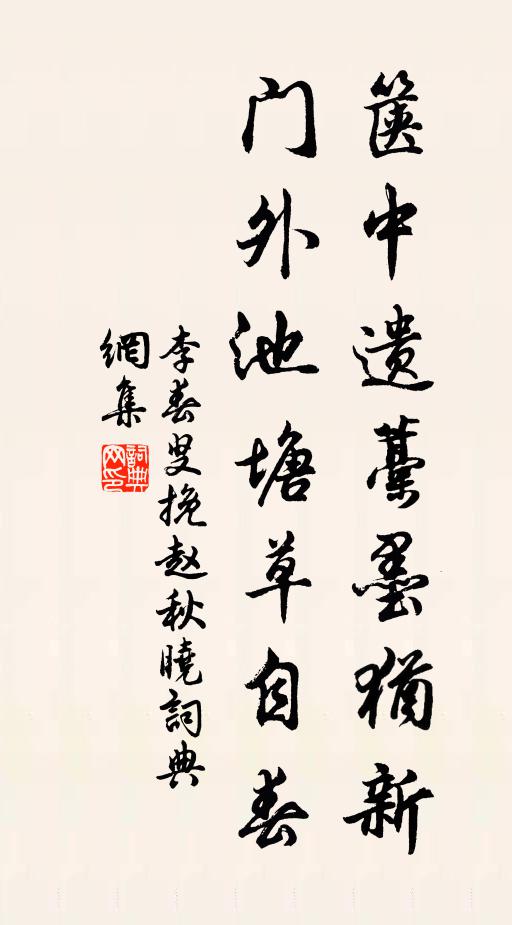 箧中遗藁墨犹新
门外池塘草自春
李春叟挽赵秋曉詞典
網集
詞典
网印